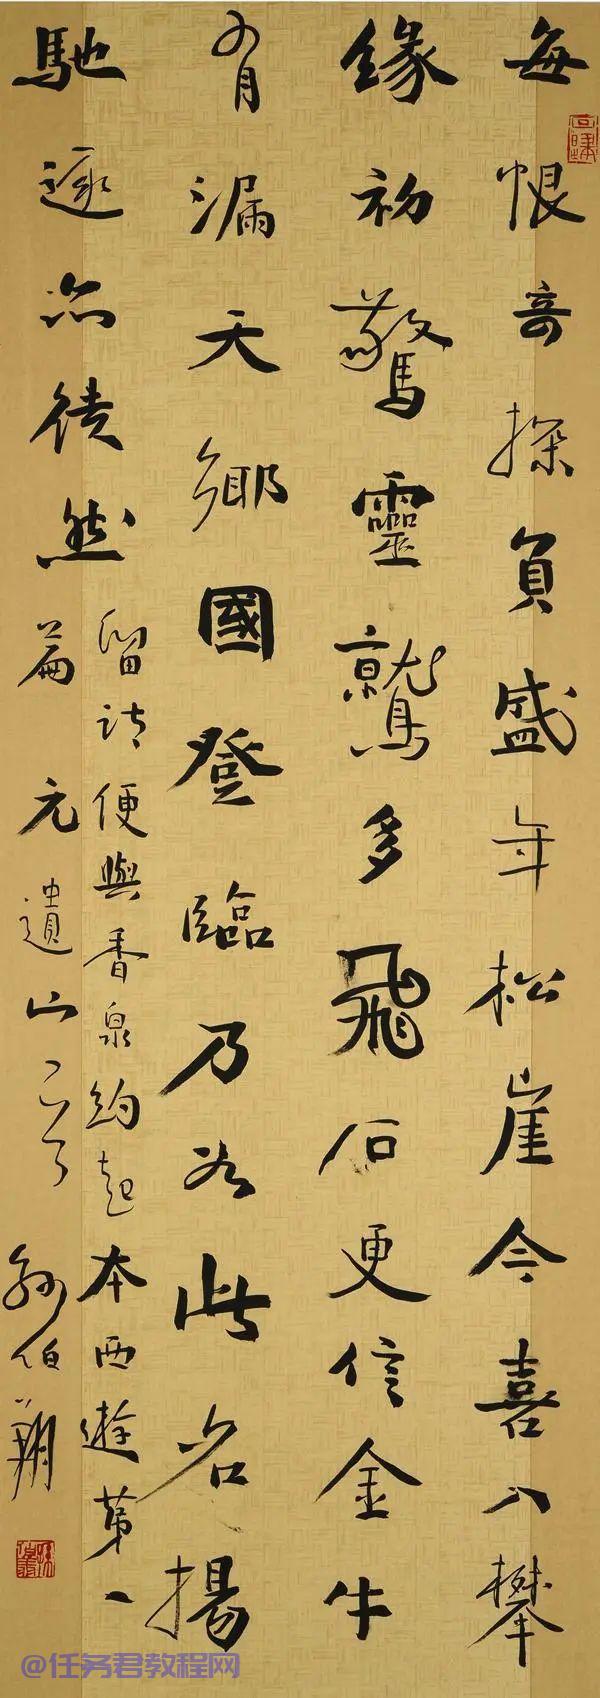 每恨奇探負盛年松崖今喜入攀
緣初驚靈鷲多飛石更信金牛
有漏天鄉國登臨乃如此名揚
馳逐亦徒然
留詩便與香泉約起本西遊第一
篇 元遺山 孫伯翔
@任务君教程网